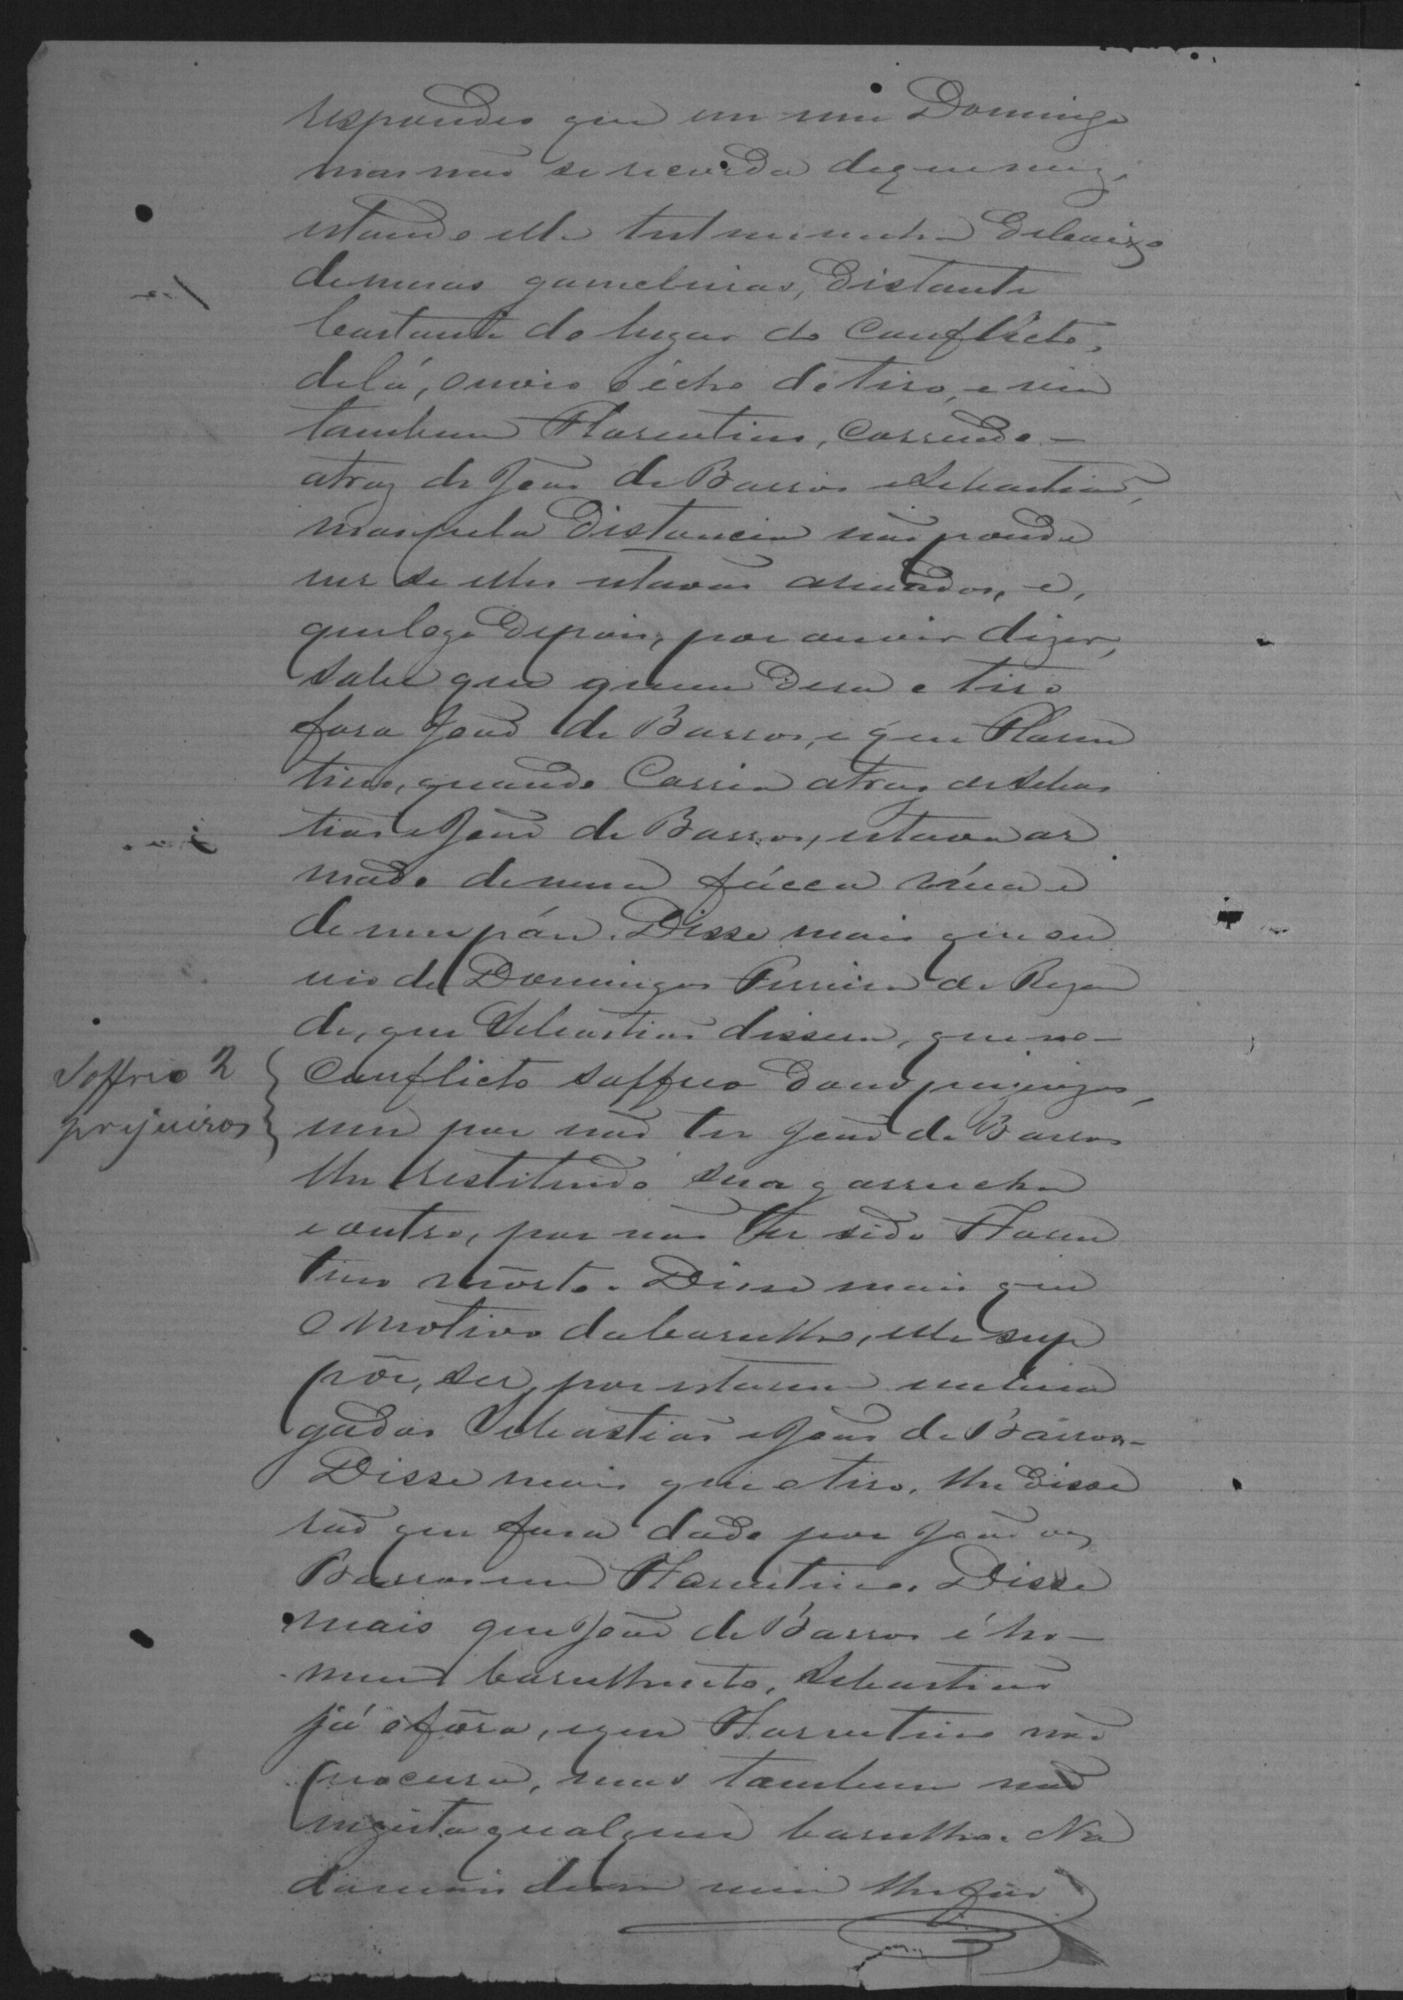 respondeo que em um Domingo
mas não se recorda de que mez,
estando elle testemunha debaixo
de umas gamelleiras, distante
bastante do lugar do conflicto,
de lá, ouvio o écho do tiro, e vio
tambem Florentino, correndo
atraz de João de Barros e Sebastião,
mas pela distancia não poude
ver se elles estavão armados, e,
que logo depois, por ouvir dizer,
sabe que quem dera o tiro
fora João de Barros, e que Floren
tino, quando corria atraz de Sebas
tião e João de Barros, estava ar
mado de uma fácca núa e
de um páu. Disse mais que ou
vio de Domingos Ferreira de Rezen
de, que Sebastião dissera, que no
conflicto soffreo dous prejuizos,
um por não ter João de Barros
lhe restituido sua garrucha
e outro, por não ter sido Floren
tino môrto. Disse mais que
o motivo do barulho, elle sup
põe, ser, por estarem embria
gados Sebastião e João de Barros
Disse mais que o tiro, lhe disse
rão que fora dado por João de
Barros em Florentino. Disse
mais que João de Barros é ho
mem barulhento, Sebastião
já o fôra, e que Florentino não
procura, mas tambem não
ingeita qualquer barulho. Na
da mais disse nem lhe foi
Soffreo 2
prejuisos